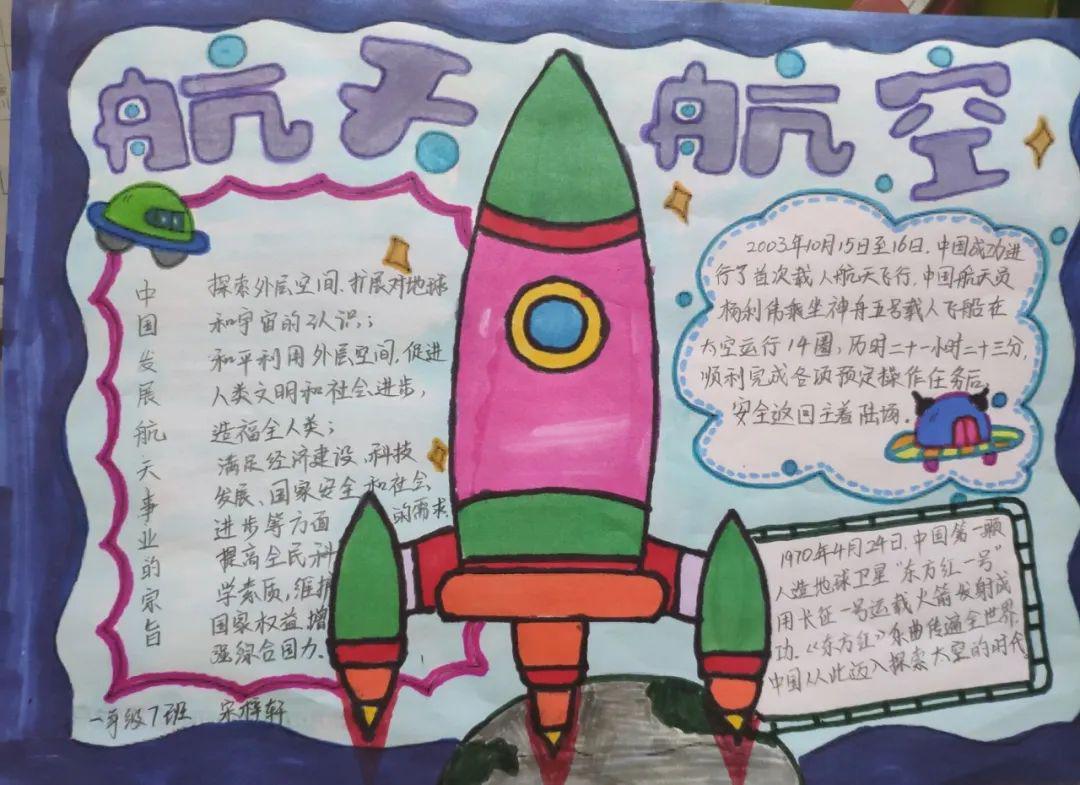 航天 航空
中国发展航天事业的宗旨
探索外层空间、扩展对地球
和宇宙的认识；
和平利用外层空间，促进
人类文明和社会进步，
造福全人类；
满足经济建设、科技
发展、国家安全和社会
进步等方面的需求
提高全民科
学素质，维护
国家权益，增
强综合国力。
2003年10月15日至16日，中国成功进
行了首次载人航天飞行，中国航天员
杨利伟乘坐神舟五号载人飞船在
太空运行14圈，历时二十一小时二十三分，
顺利完成各项预定操作任务后，
安全返回主着陆场。
1970年4月24日，中国第一颗
人造地球卫星“东方红一号”
用长征一号运载火箭发射成
功。《东方红》乐曲传遍全世界
中国从此迈入探索太空的时代。
一年级7班 宋梓轩